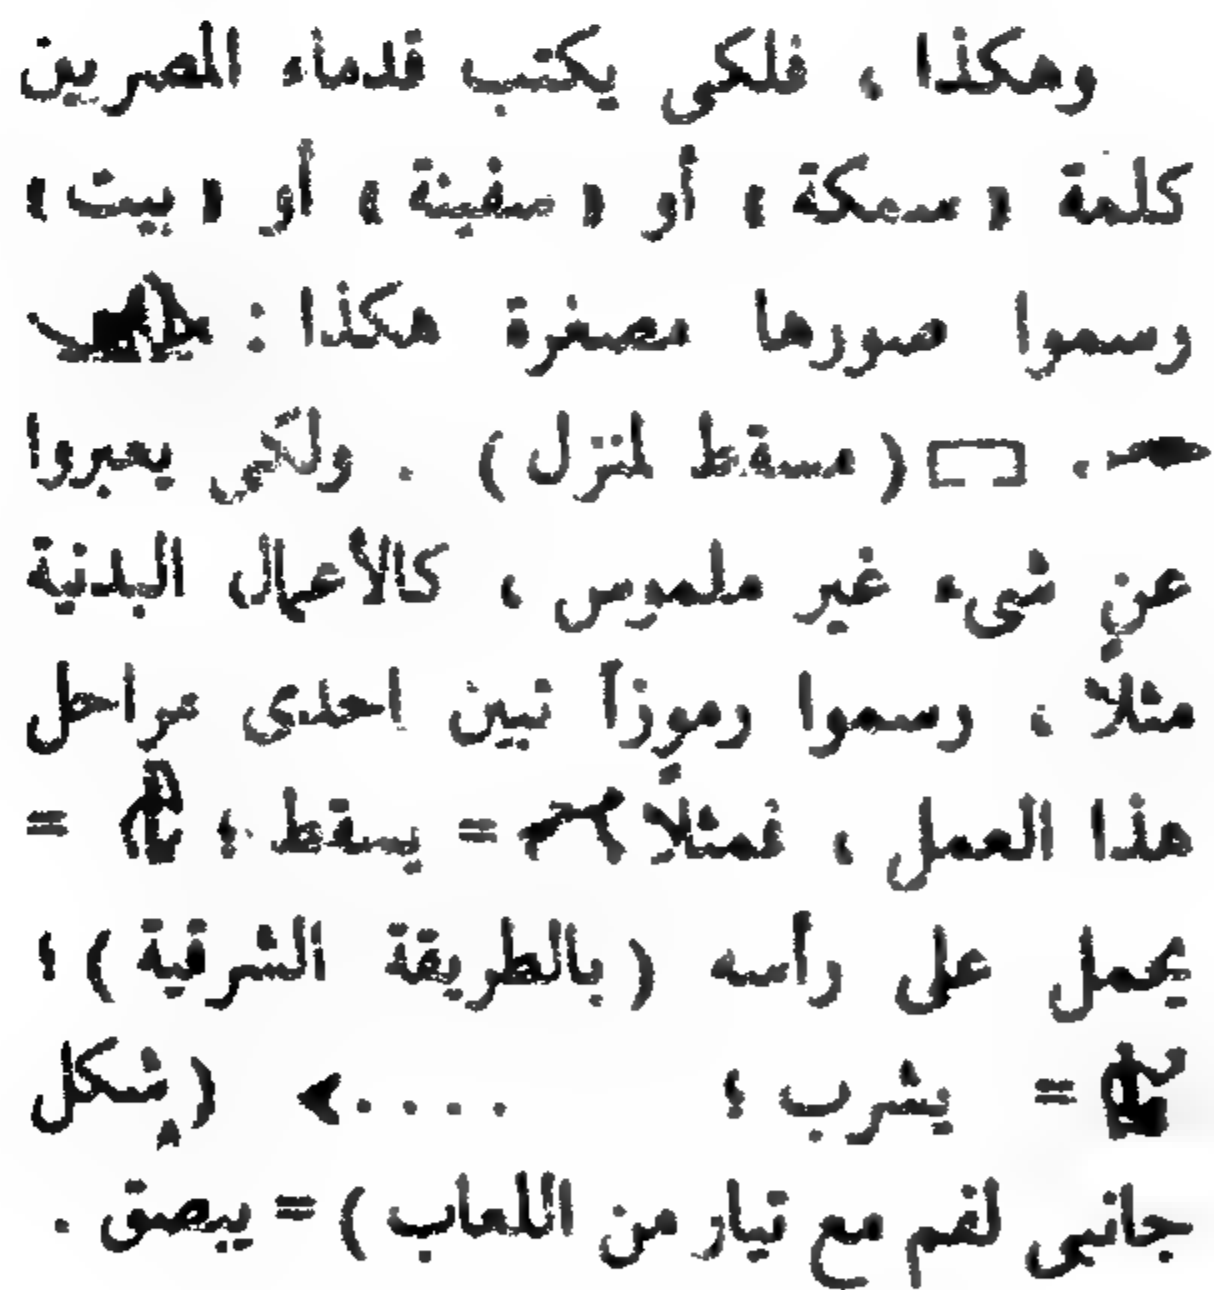 وهكذا ، فلكى يكتب قدماء المصريين
كلمة « سمكة » أو « سفينة » أو « بيت »
رسموا صورها مصغرة هكذا :
، (مسقط لمنزل) . ولكى يعبروا
عن شىء غير ملموس ، كالأعمال البدنية
مثلاً ، رسموا رموزاً تبين احدى مراحل
هذا العمل ، فمثلاً = يسقط ؛ =
يحمل على رأسه (بالطريقة الشرقية) ؛
= يشرب ؛ .... (بشكل
جانبى لفم مع تيار من اللعاب) = يبصق .